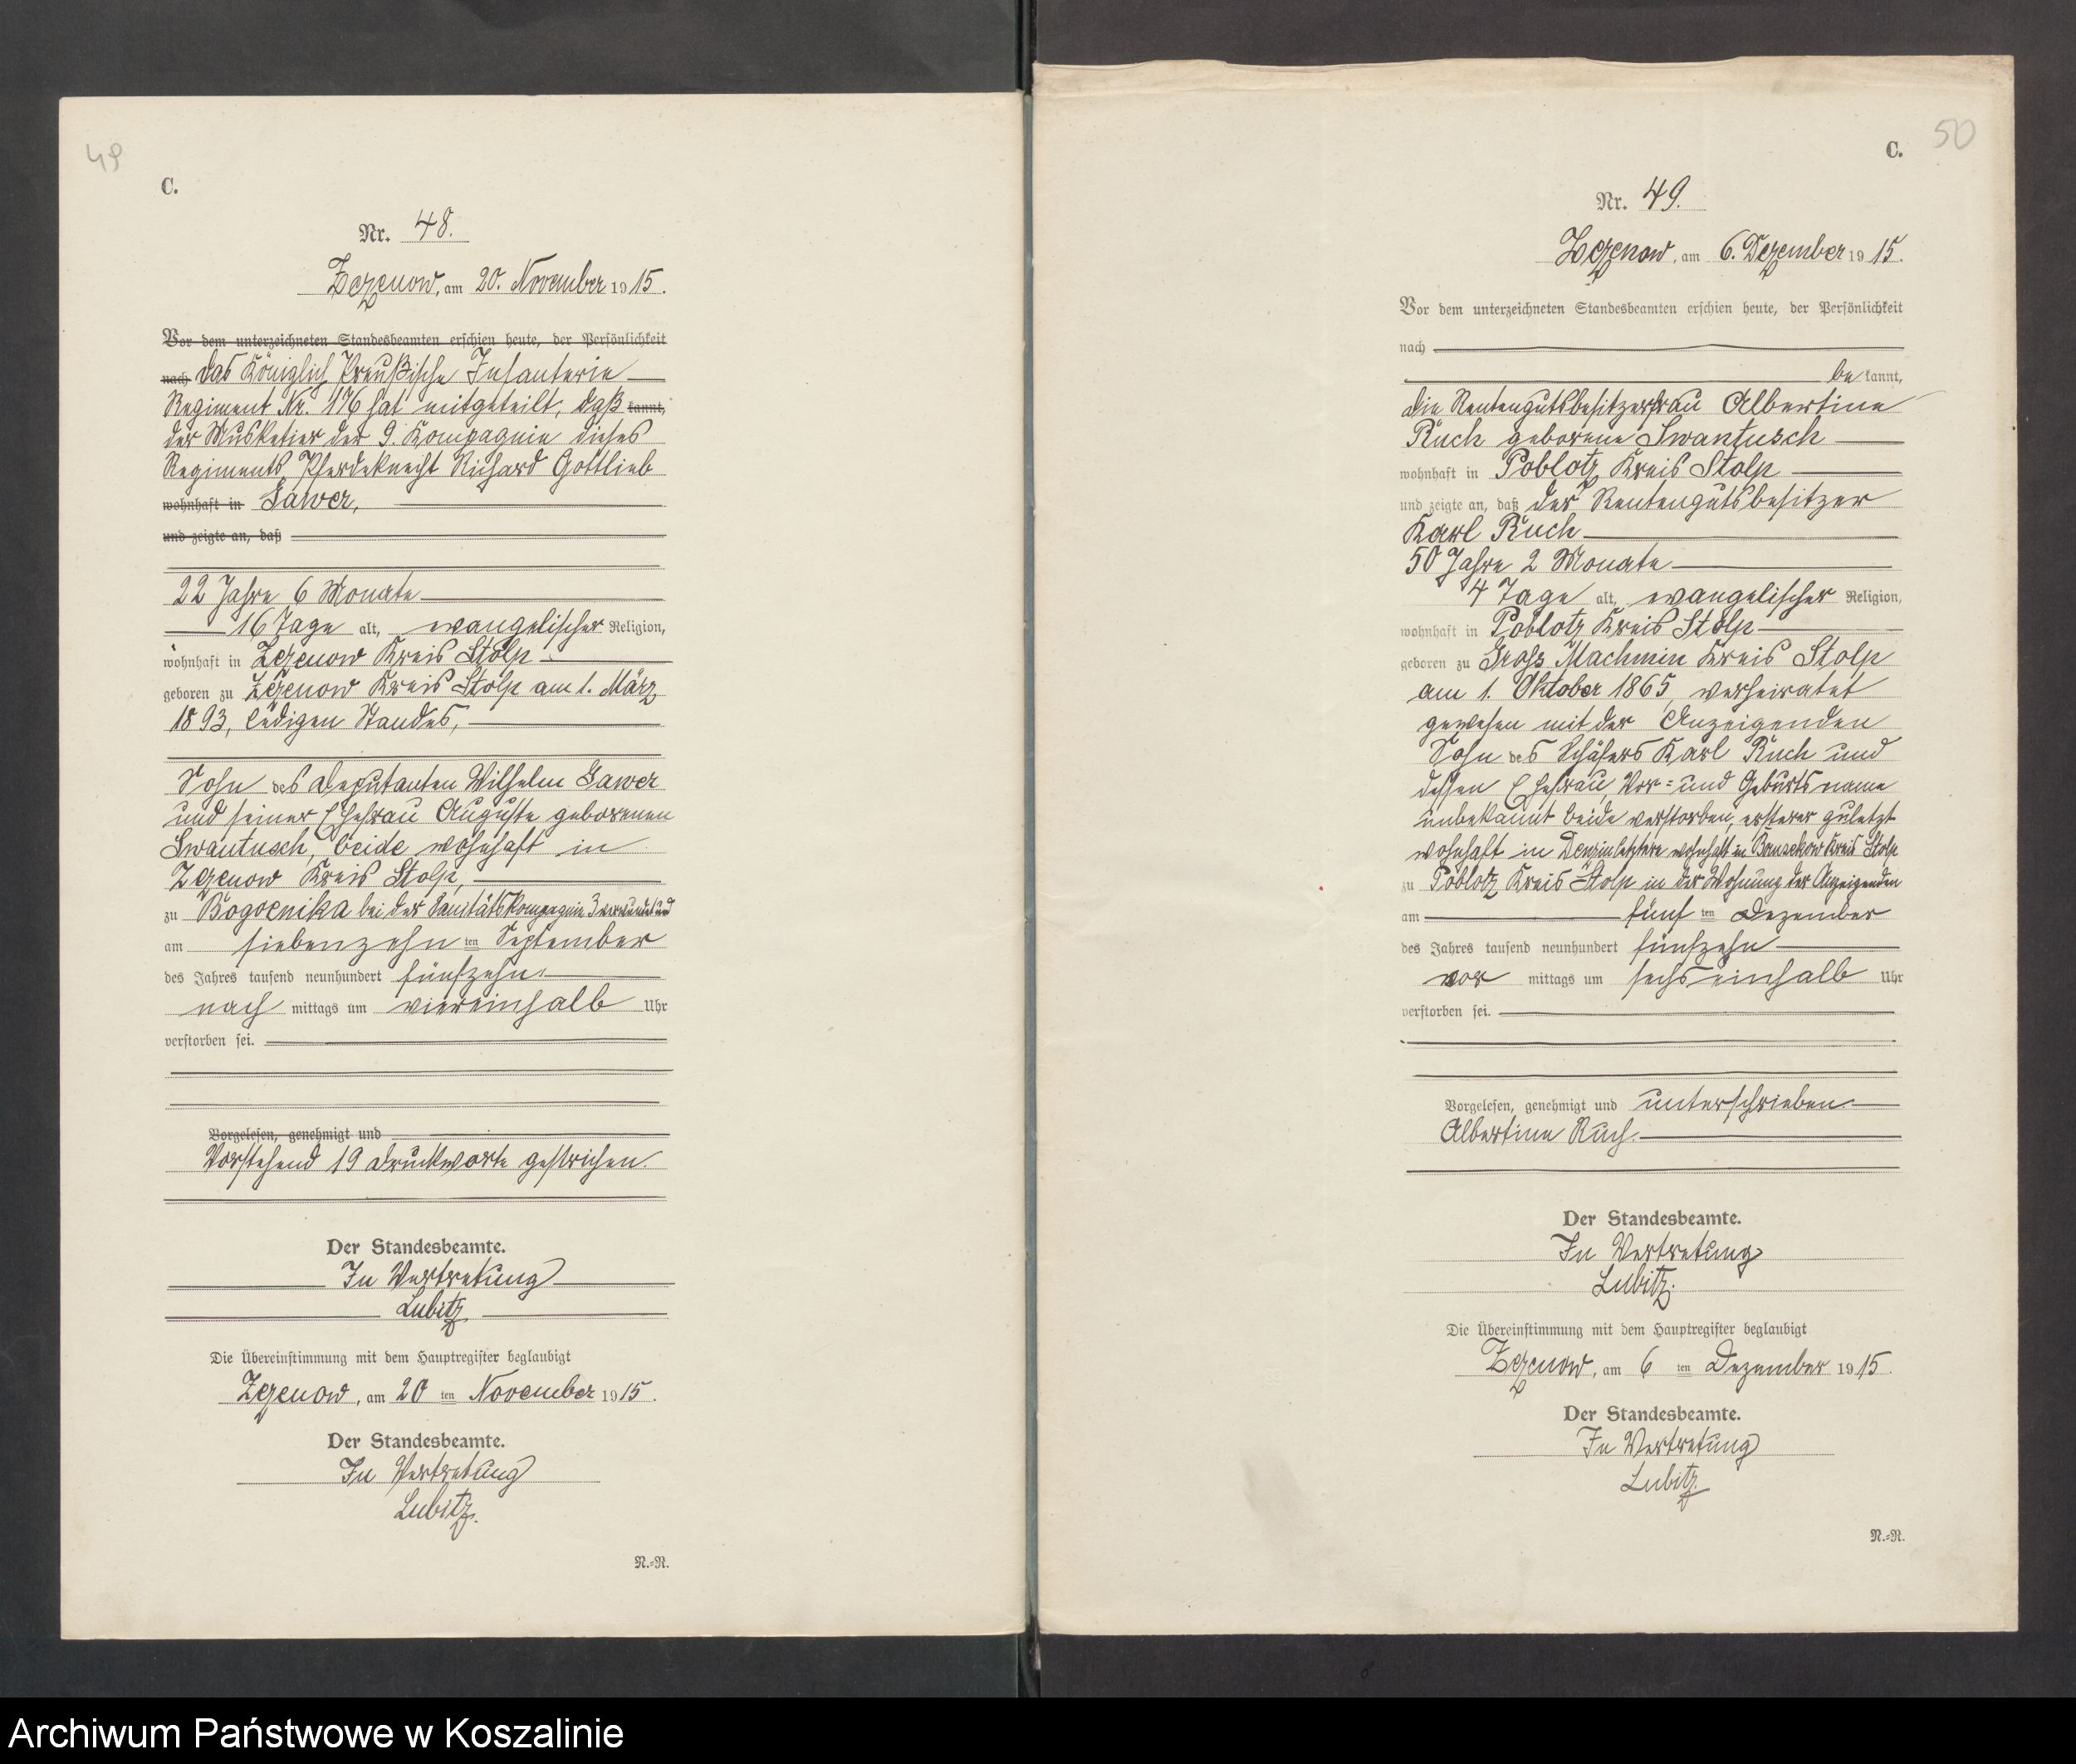 49
C.
Nr. 48.
Zezenow, am 20. November 1915.
Vor dem unterzeichneten Standesbeamten erschien heute, der Persönlichkeit
nach das Königlich Preußische Infanterie
Regiment Nr. 176 hat mitgeteilt, daß kannt,
der Musketier der 9. Kompagnie dieses
Regiments, Pferdeknecht Richard Gottlieb
wohnhaft in Gawer,
und zeigte an, daß
22 Jahre 6 Monate
16 Tage alt, evangelischer Religion,
wohnhaft in Zezenow Kreis Stolp
geboren zu Zezenow Kreis Stolp am 1. März
1893, ledigen Standes,
Sohn des Deputanten Wilhelm Gawer
und seiner Ehefrau Auguste geborenen
Swantusch, beide wohnhaft in
Zezenow Kreis Stolp,
zu Bogocnika bei der Sanitätskompagnie 3 verwundet und
am siebenzehn ten September
des Jahres tausend neunhundert fünfzehn
nach mittags um viereinhalb Uhr
verstorben sei.
Vorgelesen, genehmigt und
Vorstehend 19 Druckworte gestrichen.
Der Standesbeamte.
In Vertretung
Lubitz
Die Übereinstimmung mit dem Hauptregister beglaubigt
Zezenow, am 20 ten November 1915.
Der Standesbeamte.
In Vertretung
Lubitz.
N.=R.
50
C.
Nr. 49.
Zezenow, am 6. Dezember 1915.
Vor dem unterzeichneten Standesbeamten erschien heute, der Persönlichkeit
nach
be kannt,
die Rentengutsbesitzerfrau Albertine
Ruch geborene Swantusch
wohnhaft in Poblotz Kreis Stolp
und zeigte an, daß der Rentengutsbesitzer
Karl Ruch
50 Jahre 2 Monate
4 Tage alt, evangelischer Religion,
wohnhaft in Poblotz Kreis Stolp
geboren zu Gross Machmin Kreis Stolp
am 1. Oktober 1865, verheiratet
gewesen mit der Anzeigenden
Sohn des Schäfers Karl Ruch und
dessen Ehefrau, Vor= und Geburtsname
unbekannt beide verstorben, ersterer zuletzt
wohnhaft in Denzin letztere wohnhaft in Banskow Kreis Stolp
zu Poblotz Kreis Stolp in der Wohnung der Anzeigenden
am fünf ten Dezember
des Jahres tausend neunhundert fünfzehn
vor mittags um sechseinhalb Uhr
verstorben sei.
Vorgelesen, genehmigt und unterschrieben.
Albertine Ruch.
Der Standesbeamte.
In Vertretung
Lubitz.
Die Übereinstimmung mit dem Hauptregister beglaubigt
Zezenow, am 6 ten Dezember 1915.
Der Standesbeamte.
In Vertretung
Lubitz.
N.=R.
Archiwum Państwowe w Koszalinie